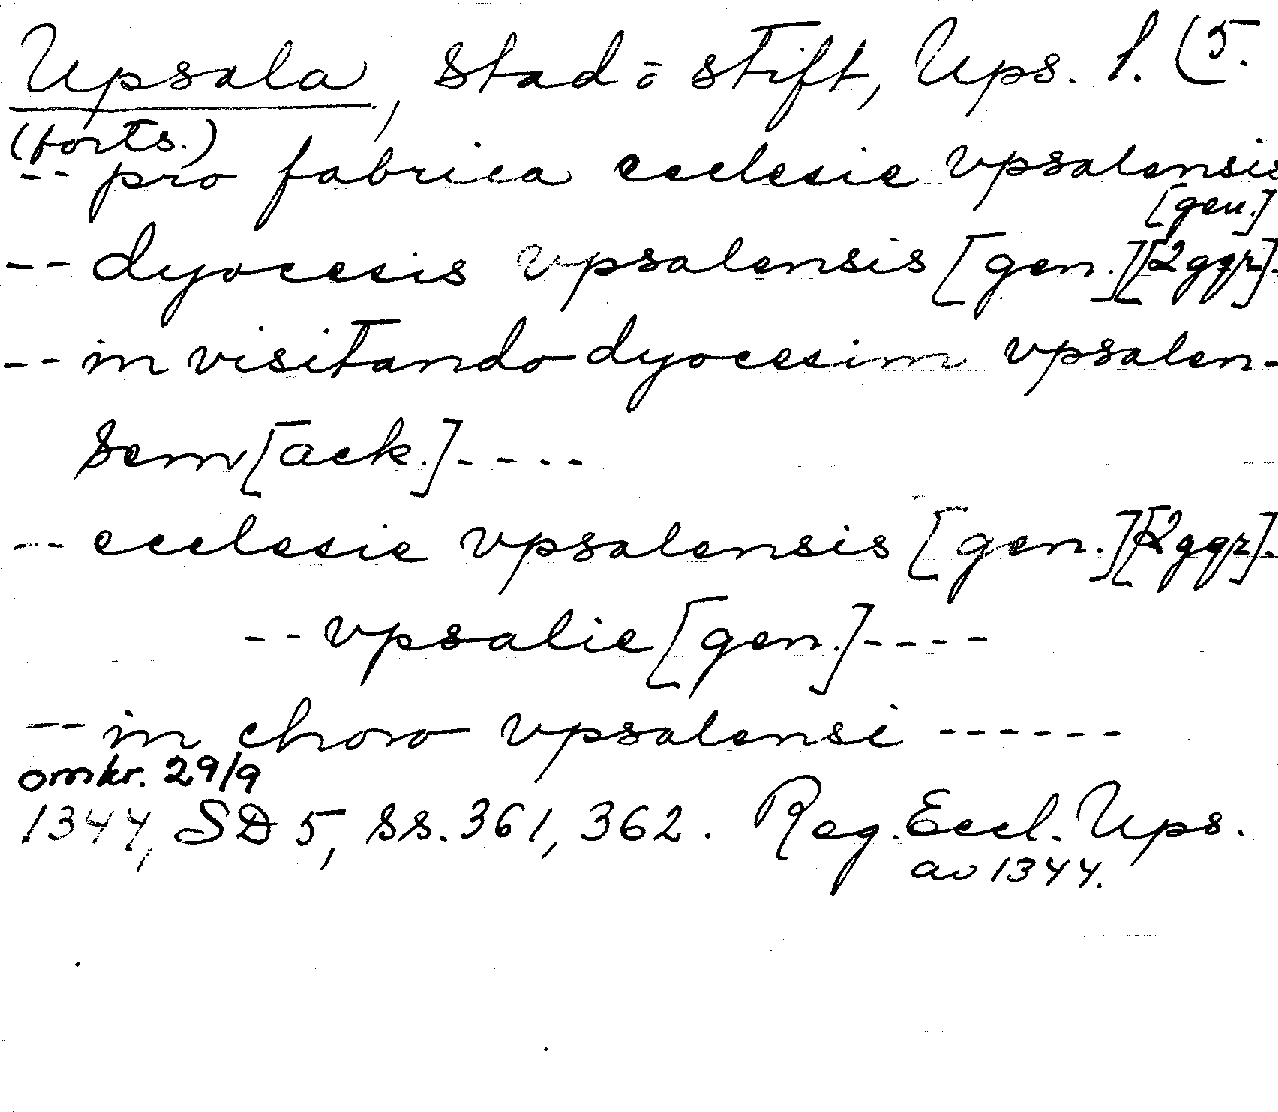 Upsala, stad o stift, Ups. l. (5.
(forts.)
-- pro fabrica ecclesie vpsalensis
[gen.]
-- dyocesis vpsalensis [gen.] [2ggr]-
-- in visitando dyocesim vpsalen-
sem [ack.]----
-- ecclesie vpsalensis [gen.] [2ggr]-
-- vpsalie [gen.]----
-- in choro vpsalensi ------
omkr. 29/9
1344, SD 5, ss. 361, 362. Reg. Eccl. Ups.
av 1344.